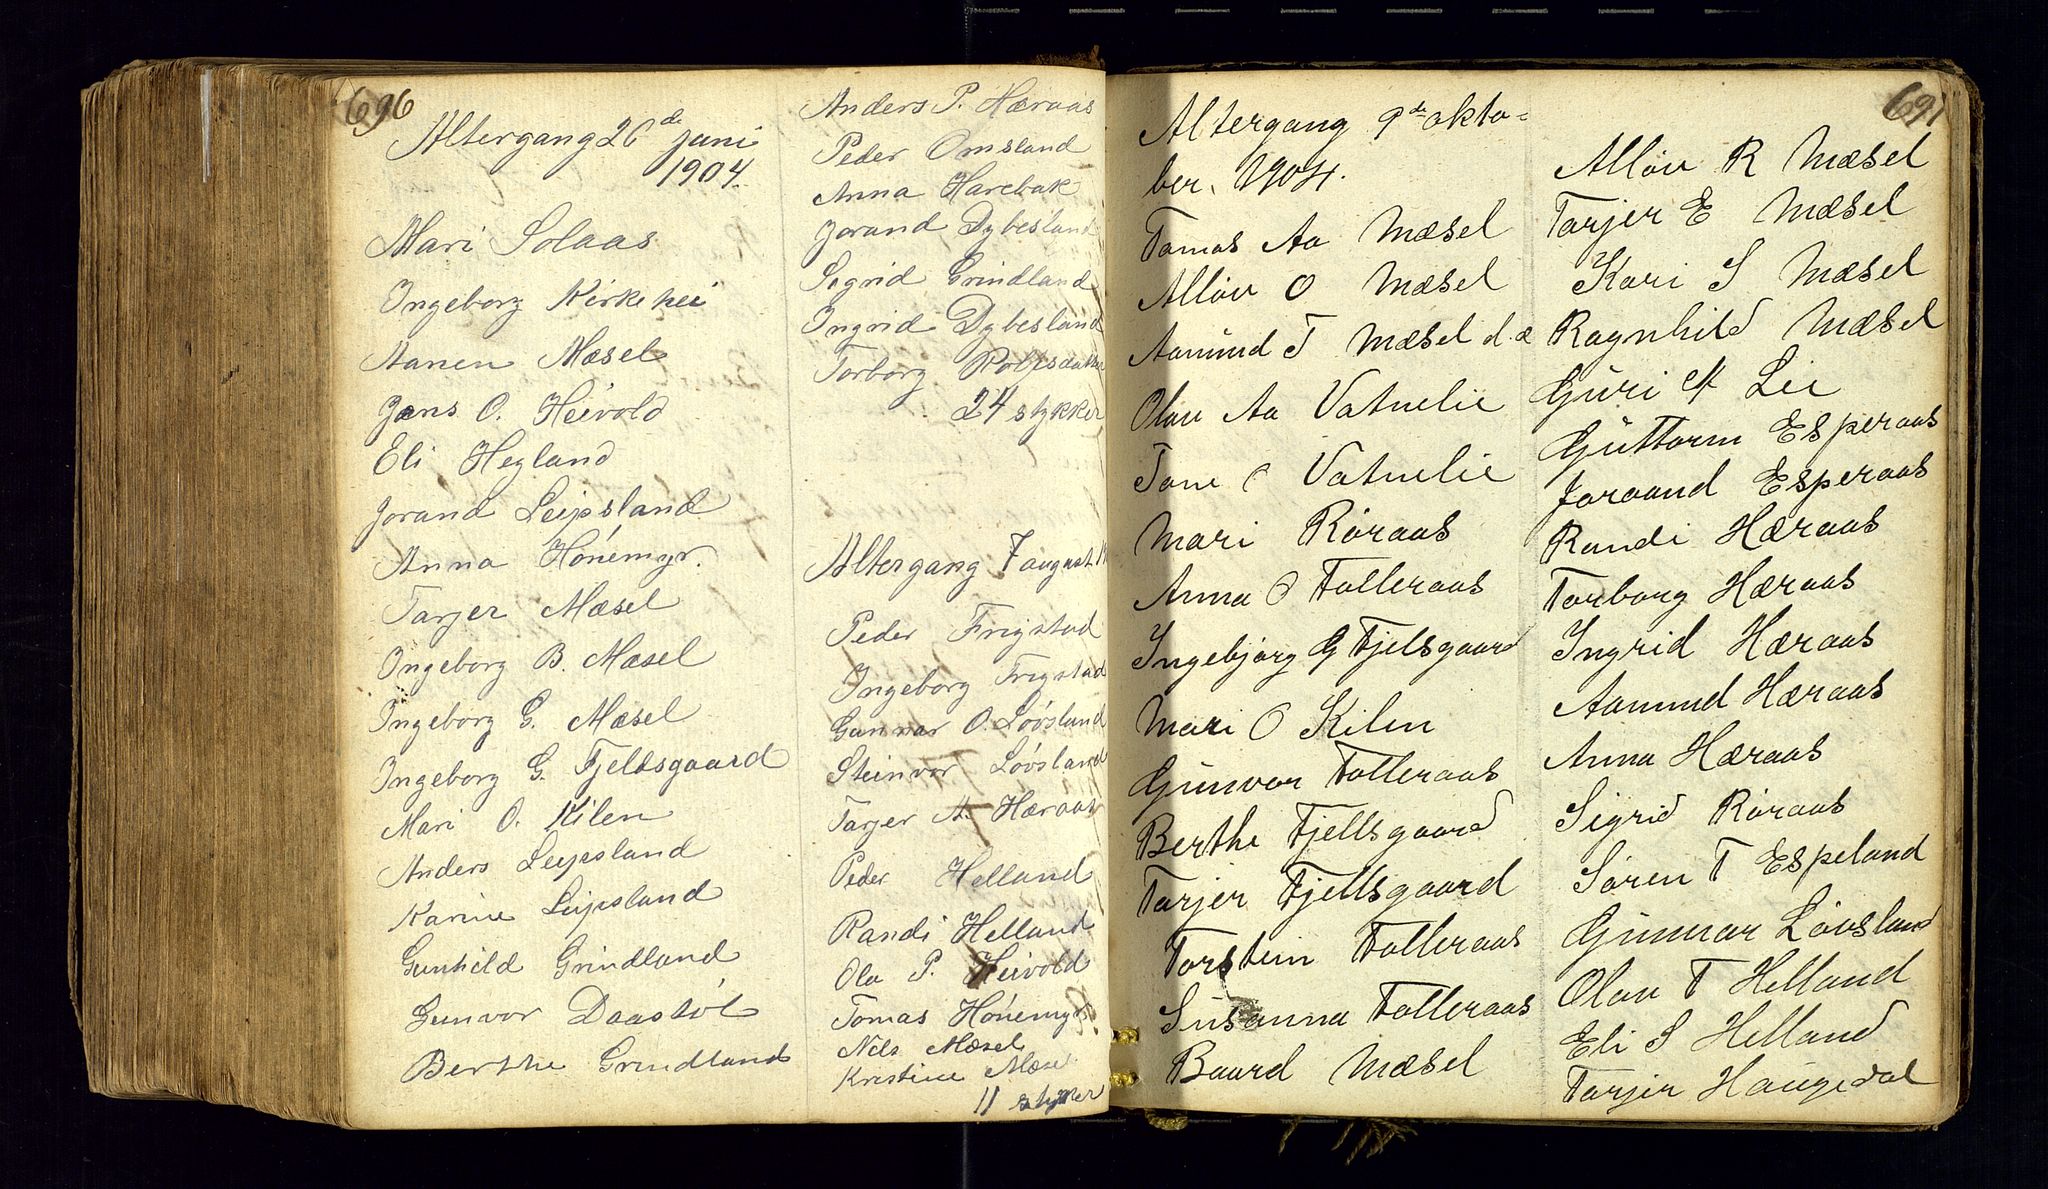 696
Altergang 26 de juni
1904.
Mari Solaas
Ingeborg Kirkehei
Aanen Mæsel
Jens O. Heivold
Eli Hegland
Jorand Leipsland
Anna Hónemyr.
Tarjer Mæsel
Ingeborg B. Mæsel
Ingeborg G. Mæsel
Ingeborg G. Fjeldsgaard
Mari O. Kilen
Anders Leipsland
Karine Leipsland
Gunhild Grindland
Gunvor Daastól
Berthe Grindland
Anders P. Hæraas
Peder Omsland
Anna Harebak
Jorand Dybesland
Sigrid Grindland
Ingrid Dybesland
Torborg
24 stykker
Altergang 7 august
Peder Frigstad
Ingeborg Frigstad
Gunnar O. Lóvsland
Steinvor Lóvsland
Tarjer A. Hæraas
Peder Helland
Randi Helland
Ola P. Heivold
Tomas Hónemyr
Nils Mæsel
Kristine Mæsel
11 stykker
691
Altergang 9de okto-
ber. 1904.
Tomas Aa Mæsel
Alløv O Mæsel
Aamund T Mæsel d. æ
Olav Aa Vatnelie
Tone O Vatnelie
Mari Røraas
Anna O Folleraas
Ingebjørg G Fjelsgaard
Mari O Kilen
Gunvor Folleraas
Berthe Fjellsgaard
Tarjer Fjellsgaard
Torstein Folleraas
Susanna Folleraas
Baard Mæsel
Alløv R Mæsel
Tarjer E Mæsel
Kari S Mæsel
Ragnhild Mæsel
Guri A Lie
Guttorm Esperaas
Joraand Esperaas
Randi Hæraas
Torborg Hæraas
Ingrid Hæraas
Aamund Hæraas
Anna Hæraas
Sigrid Røraas
Søren T Espeland
Gunnar Løvsland
Olav T Helland
Eli S Helland
Tarjer Haugedal